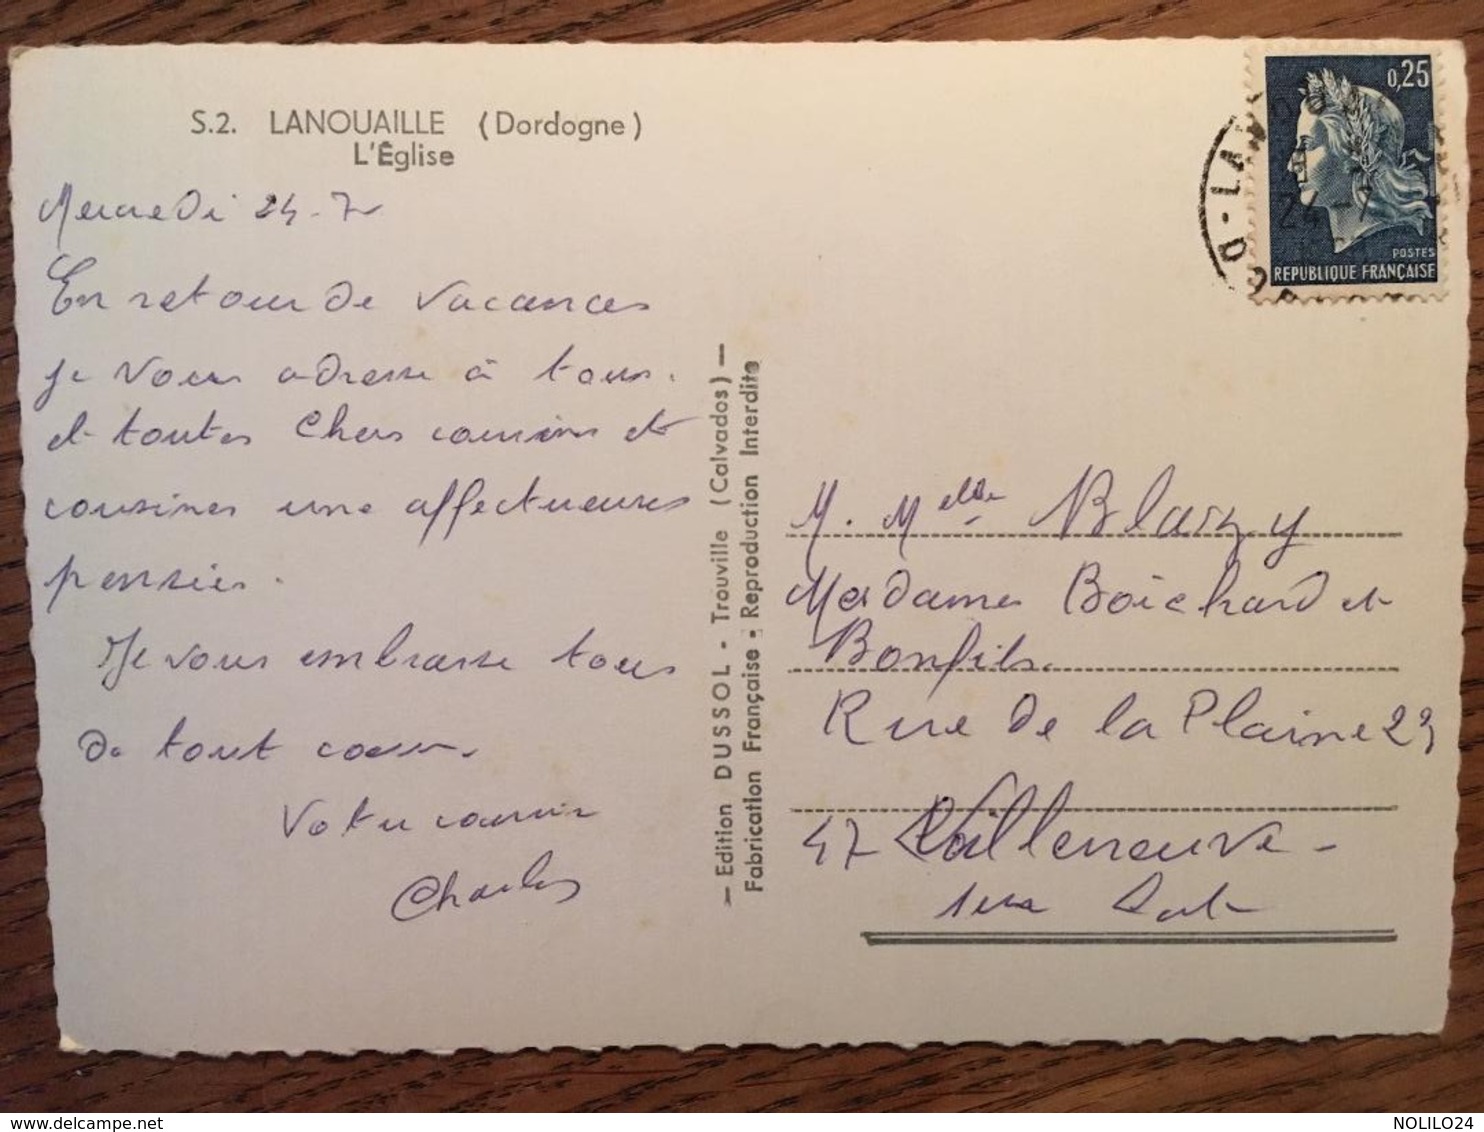 S.2. LANOUAILLE (Dordogne)
L'Église
Mercredi 24-7
En retour de vacances
je vous adresse à tous
et toutes Chers cousins et
cousines une affectueuses
pensées.
Je vous embrasse tous
de tout coeur.
Votre cousin
Charles
— Edition DUSSOL - Trouville (Calvados) —
Fabrication Française - Reproduction Interdite
0,25
POSTES
REPUBLIQUE FRANÇAISE
24-7
M. Melle Blaizy
Mesdames Boichard et
Bonfils.
Rue de la Plaine 23
47 Villeneuve-
sur Lot
NOLILO24